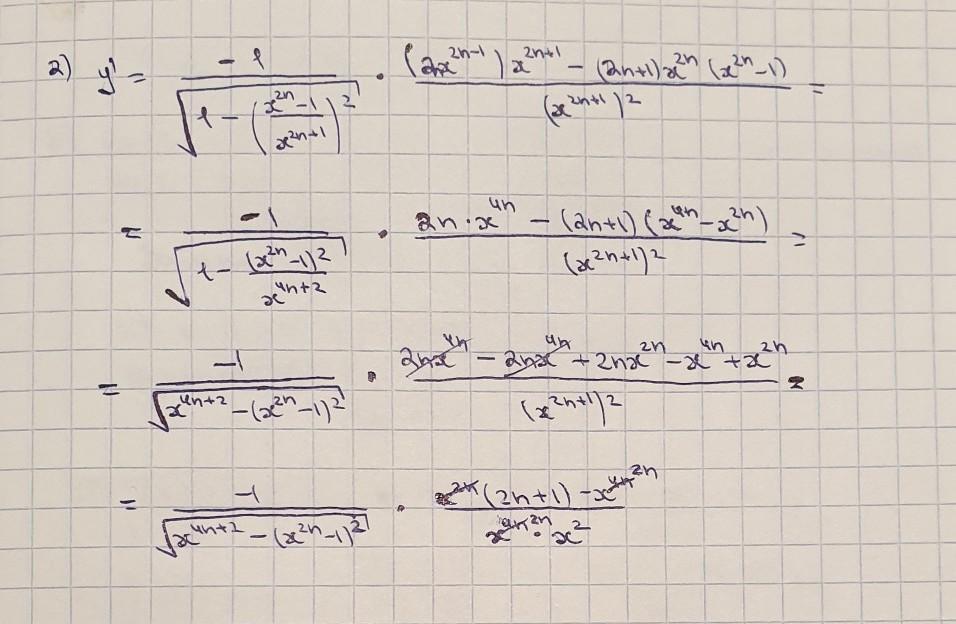 2) y' = \frac{-1}{\sqrt{1 - \left(\frac{x^{2n}-1}{x^{2n+1}}\right)^2}} \cdot \frac{(2x^{2n-1})x^{2n+1} - (2n+1)x^{2n}(x^{2n}-1)}{(x^{2n+1})^2} =
= \frac{-1}{\sqrt{1 - \frac{(x^{2n}-1)^2}{x^{4n+2}}}} \cdot \frac{2n \cdot x^{4n} - (2n+1)(x^{4n} - x^{2n})}{(x^{2n+1})^2} =
= \frac{-1}{\sqrt{x^{4n+2} - (x^{2n}-1)^2}} \cdot \frac{2nx^{4n} - 2nx^{4n} + 2nx^{2n} - x^{4n} + x^{2n}}{(x^{2n+1})^2} =
= \frac{-1}{\sqrt{x^{4n+2} - (x^{2n}-1)^2}} \cdot \frac{x^{2n}(2n+1) - x^{4n \, 2n}}{x^{4n \, 2n} \cdot x^2}